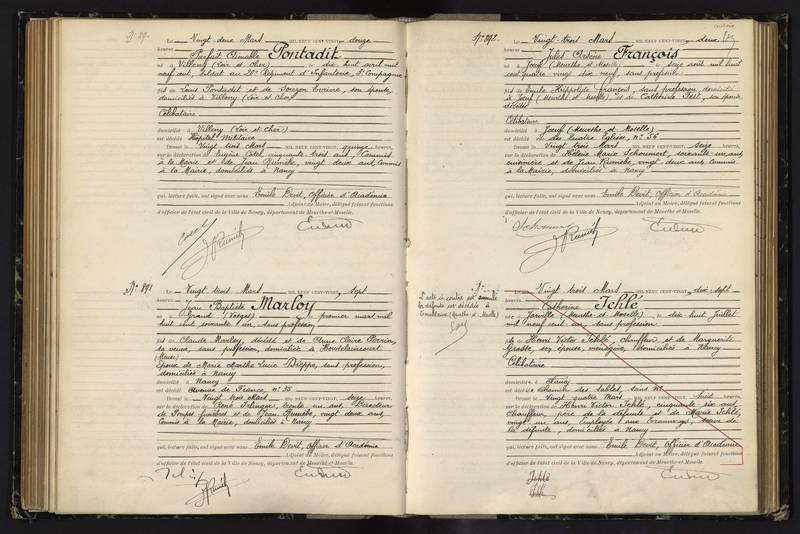 Le Vingt deux Mars MIL NEUF CENT-VINGT- douze
heures
Parfait Aimable Pontadit
né à Villeny (Loir et Cher) le dix huit avril mil
neuf cent, Soldat au Régiment d'Infanterie, Compagnie
fils de Louis Pontadit et de son épouse,
domiciliés à Villeny (Loir et Cher)
Célibataire
domicilié à Villeny (Loir et Cher)
est décédé Hôpital Militaire
Dressé le Vingt trois Mars MIL NEUF CENT-VINGT, quinze heures,
sur la déclaration de Eugène cinquante trois ans, Commis
à la Mairie et de Jean vingt deux ans, Commis
à la Mairie, domiciliés à Nancy
qui, lecture faite, ont signé avec nous Emile Devit, Officier d'Académie
Adjoint au Maire, délégué faisant fonctions
d'officier de l'état civil de la Ville de Nancy, département de Meurthe-et-Moselle.
N° 891
Le Vingt trois Mars MIL NEUF CENT-VINGT- sept
heures
Jean Baptiste Marloy
né à Grand (Vosges) le premier mars mil
huit cent soixante un, sans profession
fils de Claude Marloy, décédé et de Anne Claire
sa veuve, sans profession, domiciliée à
(Meuse)
Epoux de Marie Marthe Lucie sans profession,
domiciliés à Nancy
domicilié à Nancy
est décédé Avenue de France, n° 35
Dressé le Vingt trois Mars MIL NEUF CENT-VINGT, seize heures,
sur la déclaration de René trente un ans, Directeur
de Pompes funèbres et de Jean vingt deux ans,
Commis à la Mairie, domiciliés à Nancy
qui, lecture faite, ont signé avec nous Emile Devit, Officier d'Académie
Adjoint au Maire, délégué faisant fonctions
d'officier de l'état civil de la Ville de Nancy, département de Meurthe-et-Moselle.
N° 892
Le Vingt trois Mars MIL NEUF CENT-VINGT- deux
heures
Jules Arsène François
né à Joeuf (Meurthe et Moselle) le seize août mil huit
cent quatre vingt dix neuf, sans profession
fils de Emile Hippolyte François, sans profession, domicilié
à Joeuf (Meurthe et Moselle) et de Catherine son épouse,
décédée
Célibataire
domicilié à Joeuf (Meurthe et Moselle)
est décédé des Quatre Eglises, n° 36
Dressé le Vingt trois Mars MIL NEUF CENT-VINGT, seize heures,
sur la déclaration de Hélène Marie soixante un ans,
cuisinière et de Jean vingt deux ans, Commis
à la Mairie, domiciliés à Nancy
qui, lecture faite, ont signé avec nous Emile Devit, Officier d'Académie
Adjoint au Maire, délégué faisant fonctions
d'officier de l'état civil de la Ville de Nancy, département de Meurthe-et-Moselle.
N°
L'acte ci contre est annulé
la défunte est décédée à
Tomblaine (Meurthe et Moselle)
Le Vingt trois Mars MIL NEUF CENT-VINGT- dix sept
heures
Catherine Ichlé
née à Jarville (Meurthe et Moselle) le dix huit Juillet
mil neuf cent sans profession
fille de Henri Victor Ichlé, chauffeur et de Marguerite
son épouse, ménagère, domiciliés à Nancy
Célibataire
domiciliée à Nancy
est décédée Chemin des Sables, sans n°
Dressé le Vingt quatre Mars MIL NEUF CENT-VINGT, huit heures,
sur la déclaration de Henri Victor Ichlé, cinquante six ans,
Chauffeur, père de la défunte et de Marie Ichlé,
vingt un ans, employée aux tramways, soeur de
la défunte, domiciliés à Nancy
qui, lecture faite, ont signé avec nous Emile Devit, Officier d'Académie
Adjoint au Maire, délégué faisant fonctions
d'officier de l'état civil de la Ville de Nancy, département de Meurthe-et-Moselle.
Ichlé